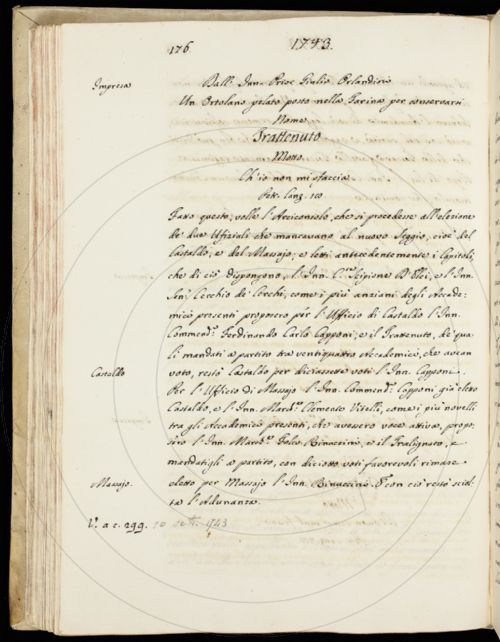 176 1743.
Impresa Ball: Inn. Prior Giulio Orlandini
Un Ortolano pelato posto nella Farina per conservarsi
Nome
Trattenuto
Motto.
Ch' io non mi sfaccia
Petr. Canz. 10
Fatto questo, volle l'Arciconsolo, che si procedesse all'elezione
de' due Ufiziali che mancavano al nuovo Seggio, cioè del
Castaldo, e del Massajo; e letti antecedentemente i Capitoli,
che di ciò dispongono, l'Inn. Scipione e l'Inn.
Sen. Cerchio de' Cerchi, come i più anziani degli Accade-
mici presenti proposero per l'Uffizio di Castaldo l'Inn.
Commend. Ferdinando Carlo Capponi, e il Trattenuto, de' qua-
li mandati a partito tra ventiquattro Accademici, che avean
Castaldo voto, restò Castaldo per diciassette voti l'Inn. Capponi.
Per l'Uffizio di Massajo l'Inn. Commend. Capponi già eletto
Castaldo, e l'Inn. March. Clemente Vitelli, come i più novelli
tra gli Accademici presenti, che avessero voce attiva, propo-
sero l'Inn. March. Folco Rinuccini, e il Tralignato, e
mandatigli a partito, con diciotto voti favorevoli rimase
Massajo. eletto per Massajo l'Inn. Rinuccini. E con ciò restò sciol-
ta l'Adunanza.
V. a c. 299. 10 sett. 1743